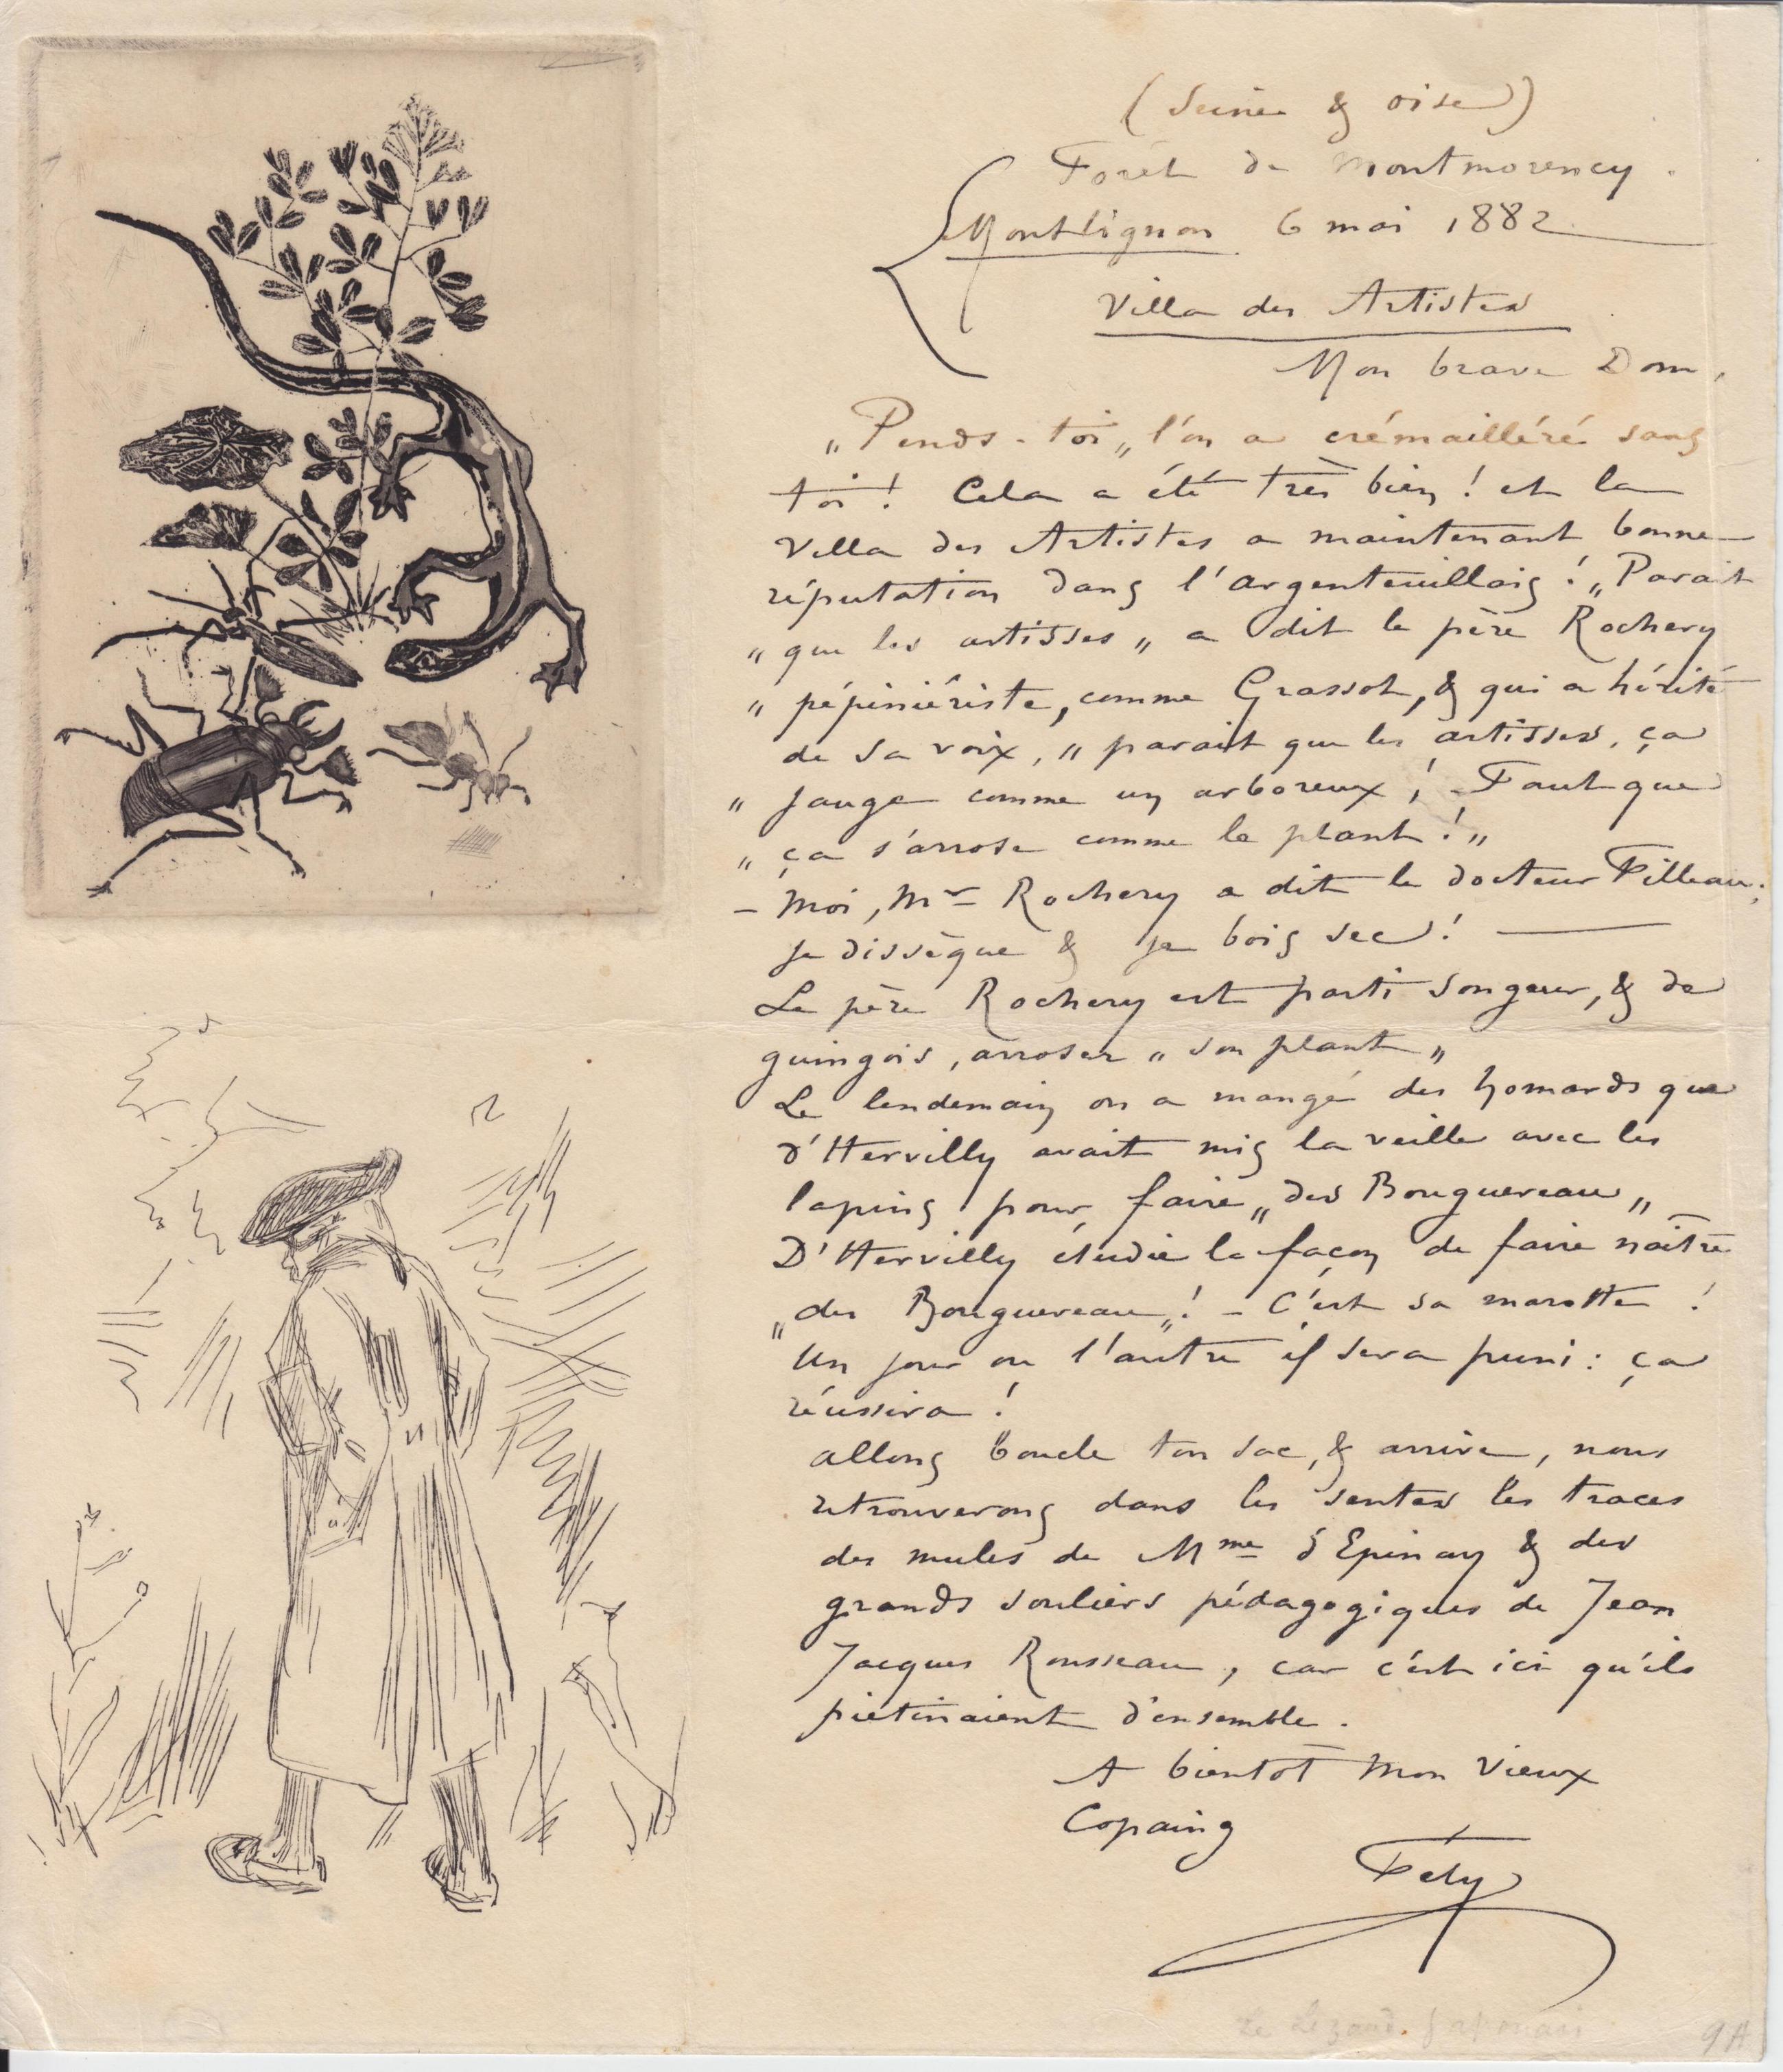 (Seine & oise)
Forêt de Montmorency.
Montlignon 6 mai 1882
Villa des Artistes
Mon brave Dom,
"Pends-toi" l'on a crémailléré sans
toi! Cela a été très bien! et la
Villa des Artistes a maintenant bonne
réputation dans l'argenteuillois! "Parait
"que les artisses" a dit le père Rochery
"pépiniériste, comme Grassot, & qui a hérité
de sa voix, "parait que les artisses, ça
"jauge comme un arboreux! Faut que
"ça s'arrose comme le plant!"
– Moi, Mr Rochery a dit le docteur Filleau;
je dissèque & je bois sec! —
Le père Rochery est parti songeur, & de
guingois, arroser "son plant"
Le lendemain on a mangé des homards que
d'Hervilly avait mis la veille avec les
lapins pour faire "des Bouguereau"
D'Hervilly étudie la façon de faire naître
"des Bouguereau"! – C'est sa marotte!
Un jour ou l'autre il sera puni: ça
réussira!
allons boucle ton sac, & arrive, nous
retrouverons dans les sentes les traces
des mules de Mme d'Epinay & des
grands souliers pédagogiques de Jean
Jacques Rousseau, car c'est ici qu'ils
piétinaient d'ensemble.
A bientôt Mon Vieux
Copaing
Fély
Le Lézard Japonais
9A